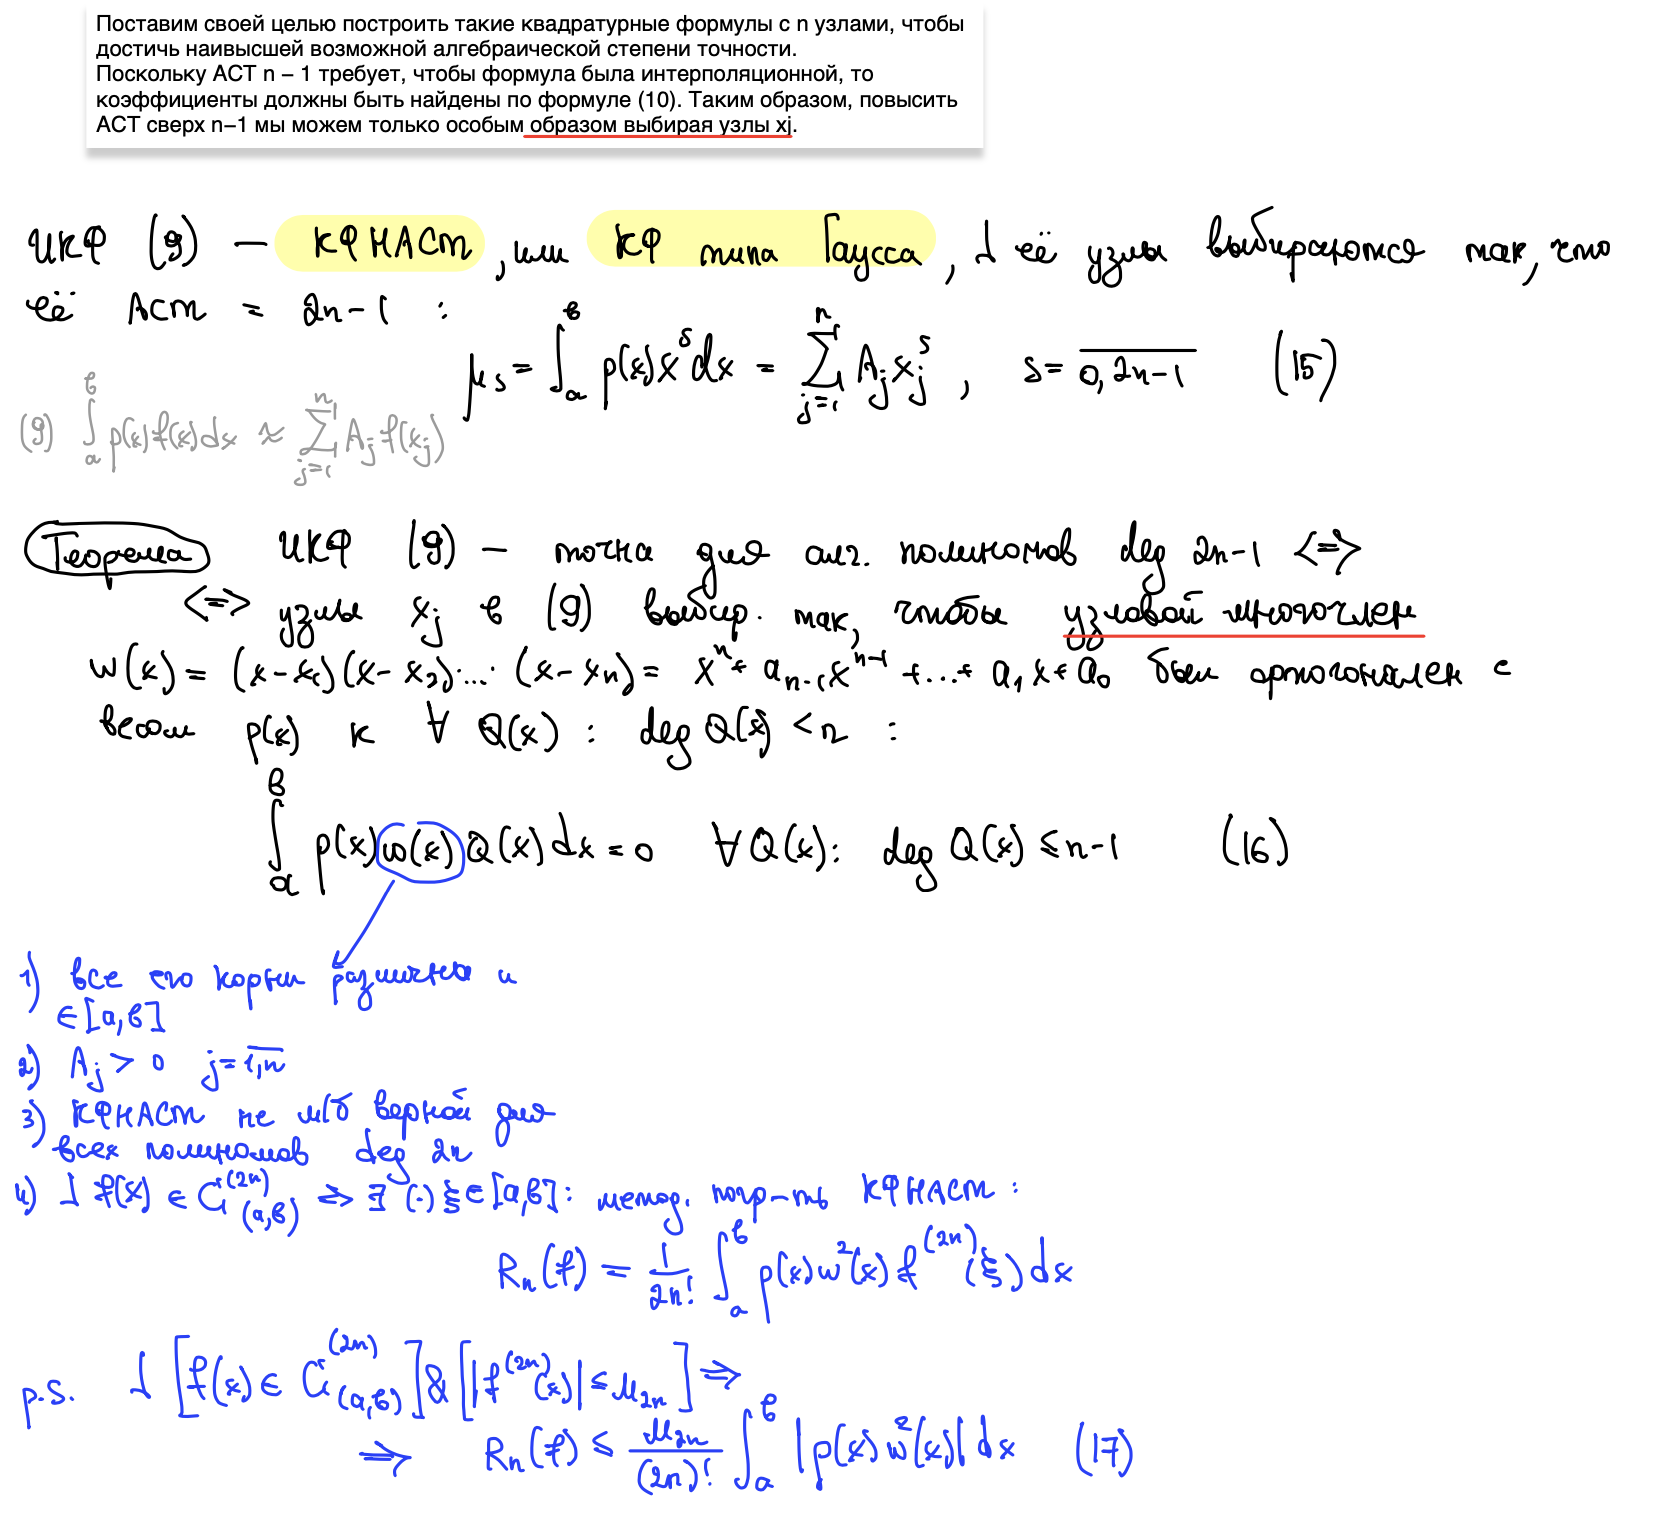 Поставим своей целью построить такие квадратурные формулы с n узлами, чтобы
достичь наивысшей возможной алгебраической степени точности.
Поскольку АСТ n − 1 требует, чтобы формула была интерполяционной, то
коэффициенты должны быть найдены по формуле (10). Таким образом, повысить
АСТ сверх n−1 мы можем только особым образом выбирая узлы xj.
ИКФ (9) — КФНАСТ, или КФ типа Гаусса, ⅃ её узлы выбираются так, что
её АСТ = 2n-1 :
μ_s = ∫_a^b p(x)x^s dx = ∑_{j=1}^n A_j x_j^s, s = \overline{0, 2n-1} (15)
(9) ∫_a^b p(x)f(x)dx ≈ ∑_{j=1}^n A_j f(x_j)
Теорема ИКФ (9) — точна для алг. полиномов deg 2n-1 <=>
<=> узлы x_j в (9) выбир. так, чтобы узловой многочлен
w(x) = (x-x_1)(x-x_2)·...·(x-x_n) = x^n + a_{n-1}x^{n-1} +...+ a_1x + a_0 был ортогонален с
весом p(x) к ∀ Q(x) : deg Q(x) < n :
∫_a^b p(x)w(x)Q(x)dx = 0 ∀Q(x): deg Q(x) ≤ n-1 (16)
1) все его корни различны и
∈[a,b]
2) A_j > 0 j = \overline{1,n}
3) КФНАСТ не м/б верной для
всех полиномов deg 2n
4) ⅃ f(x) ∈ C^{(2n)}_{(a,b)} => ∃ (·) ξ∈[a,b]: метод. погр-ть КФНАСТ :
R_n(f) = \frac{1}{2n!} ∫_a^b p(x)w^2(x) f^{(2n)}(ξ)dx
p.s. ⅃ [f(x)∈ C^{(2n)}_{(a,b)}] & [|f^{(2n)}(x)| ≤ M_{2n}] =>
=> R_n(f) ≤ \frac{M_{2n}}{(2n)!} ∫_a^b |p(x) w^2(x)| dx (17)